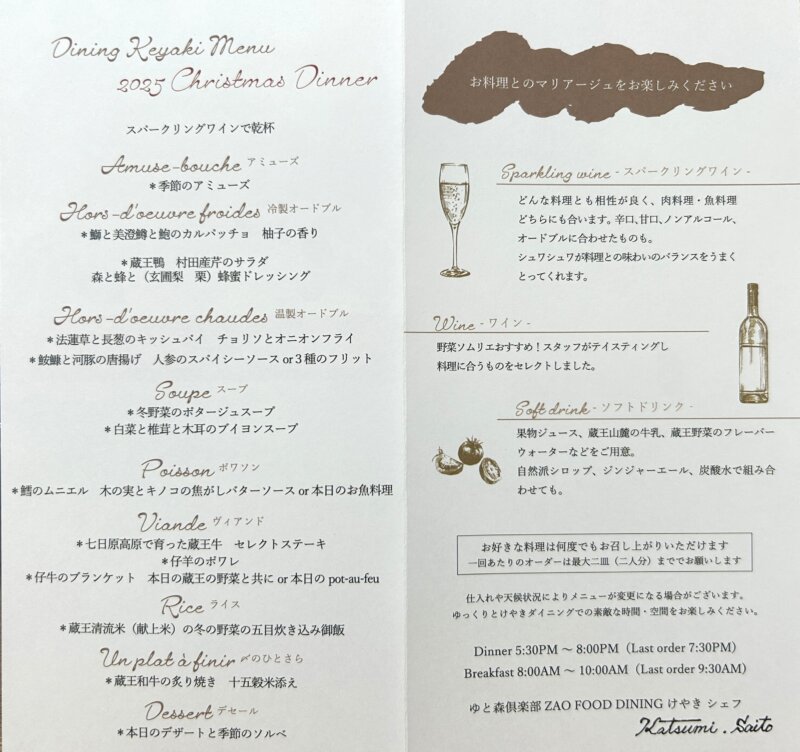 Dining Keyaki Menu
2025 Christmas Dinner
スパークリングワインで乾杯
Amuse-bouche アミューズ
＊季節のアミューズ
Hors-d'oeuvre froides 冷製オードブル
＊鰤と美澄鱒と鮑のカルパッチョ　柚子の香り
＊蔵王鴨　村田産芹のサラダ
森と蜂と（玄圃梨　栗）蜂蜜ドレッシング
Hors-d'oeuvre chaudes 温製オードブル
＊法蓮草と長葱のキッシュパイ　チョリソとオニオンフライ
＊鮟鱇と河豚の唐揚げ　人参のスパイシーソース or３種のフリット
Soupe スープ
＊冬野菜のポタージュスープ
＊白菜と椎茸と木耳のブイヨンスープ
Poisson ポワソン
＊鱈のムニエル　木の実とキノコの焦がしバターソース or 本日のお魚料理
Viande ヴィアンド
＊七日原高原で育った蔵王牛　セレクトステーキ
＊仔羊のポワレ
＊仔牛のブランケット　本日の蔵王の野菜と共に or 本日の pot-au-feu
Rice ライス
＊蔵王清流米（献上米）の冬の野菜の五目炊き込み御飯
Un plat à finir 〆のひとさら
＊蔵王和牛の炙り焼き　十五穀米添え
Dessert デセール
＊本日のデザートと季節のソルベ
お料理とのマリアージュをお楽しみください
Sparkling wine - スパークリングワイン -
どんな料理とも相性が良く、肉料理・魚料理
どちらにも合います。辛口、甘口、ノンアルコール、
オードブルに合わせたものも。
シュワシュワが料理との味わいのバランスをうまく
とってくれます。
Wine - ワイン -
野菜ソムリエおすすめ！スタッフがテイスティングし
料理に合うものをセレクトしました。
Soft drink - ソフトドリンク -
果物ジュース、蔵王山麓の牛乳、蔵王野菜のフレーバー
ウォーターなどをご用意。
自然派シロップ、ジンジャーエール、炭酸水で組み合
わせても。
お好きな料理は何度でもお召し上がりいただけます
一回あたりのオーダーは最大二皿（二人分）まででお願いします
仕入れや天候状況によりメニューが変更になる場合がございます。
ゆっくりとけやきダイニングでの素敵な時間・空間をお楽しみください。
Dinner 5:30PM ～ 8:00PM（Last order 7:30PM）
Breakfast 8:00AM ～ 10:00AM（Last order 9:30AM）
ゆと森倶楽部 ZAO FOOD DINING けやき シェフ
Katsumi . Saito